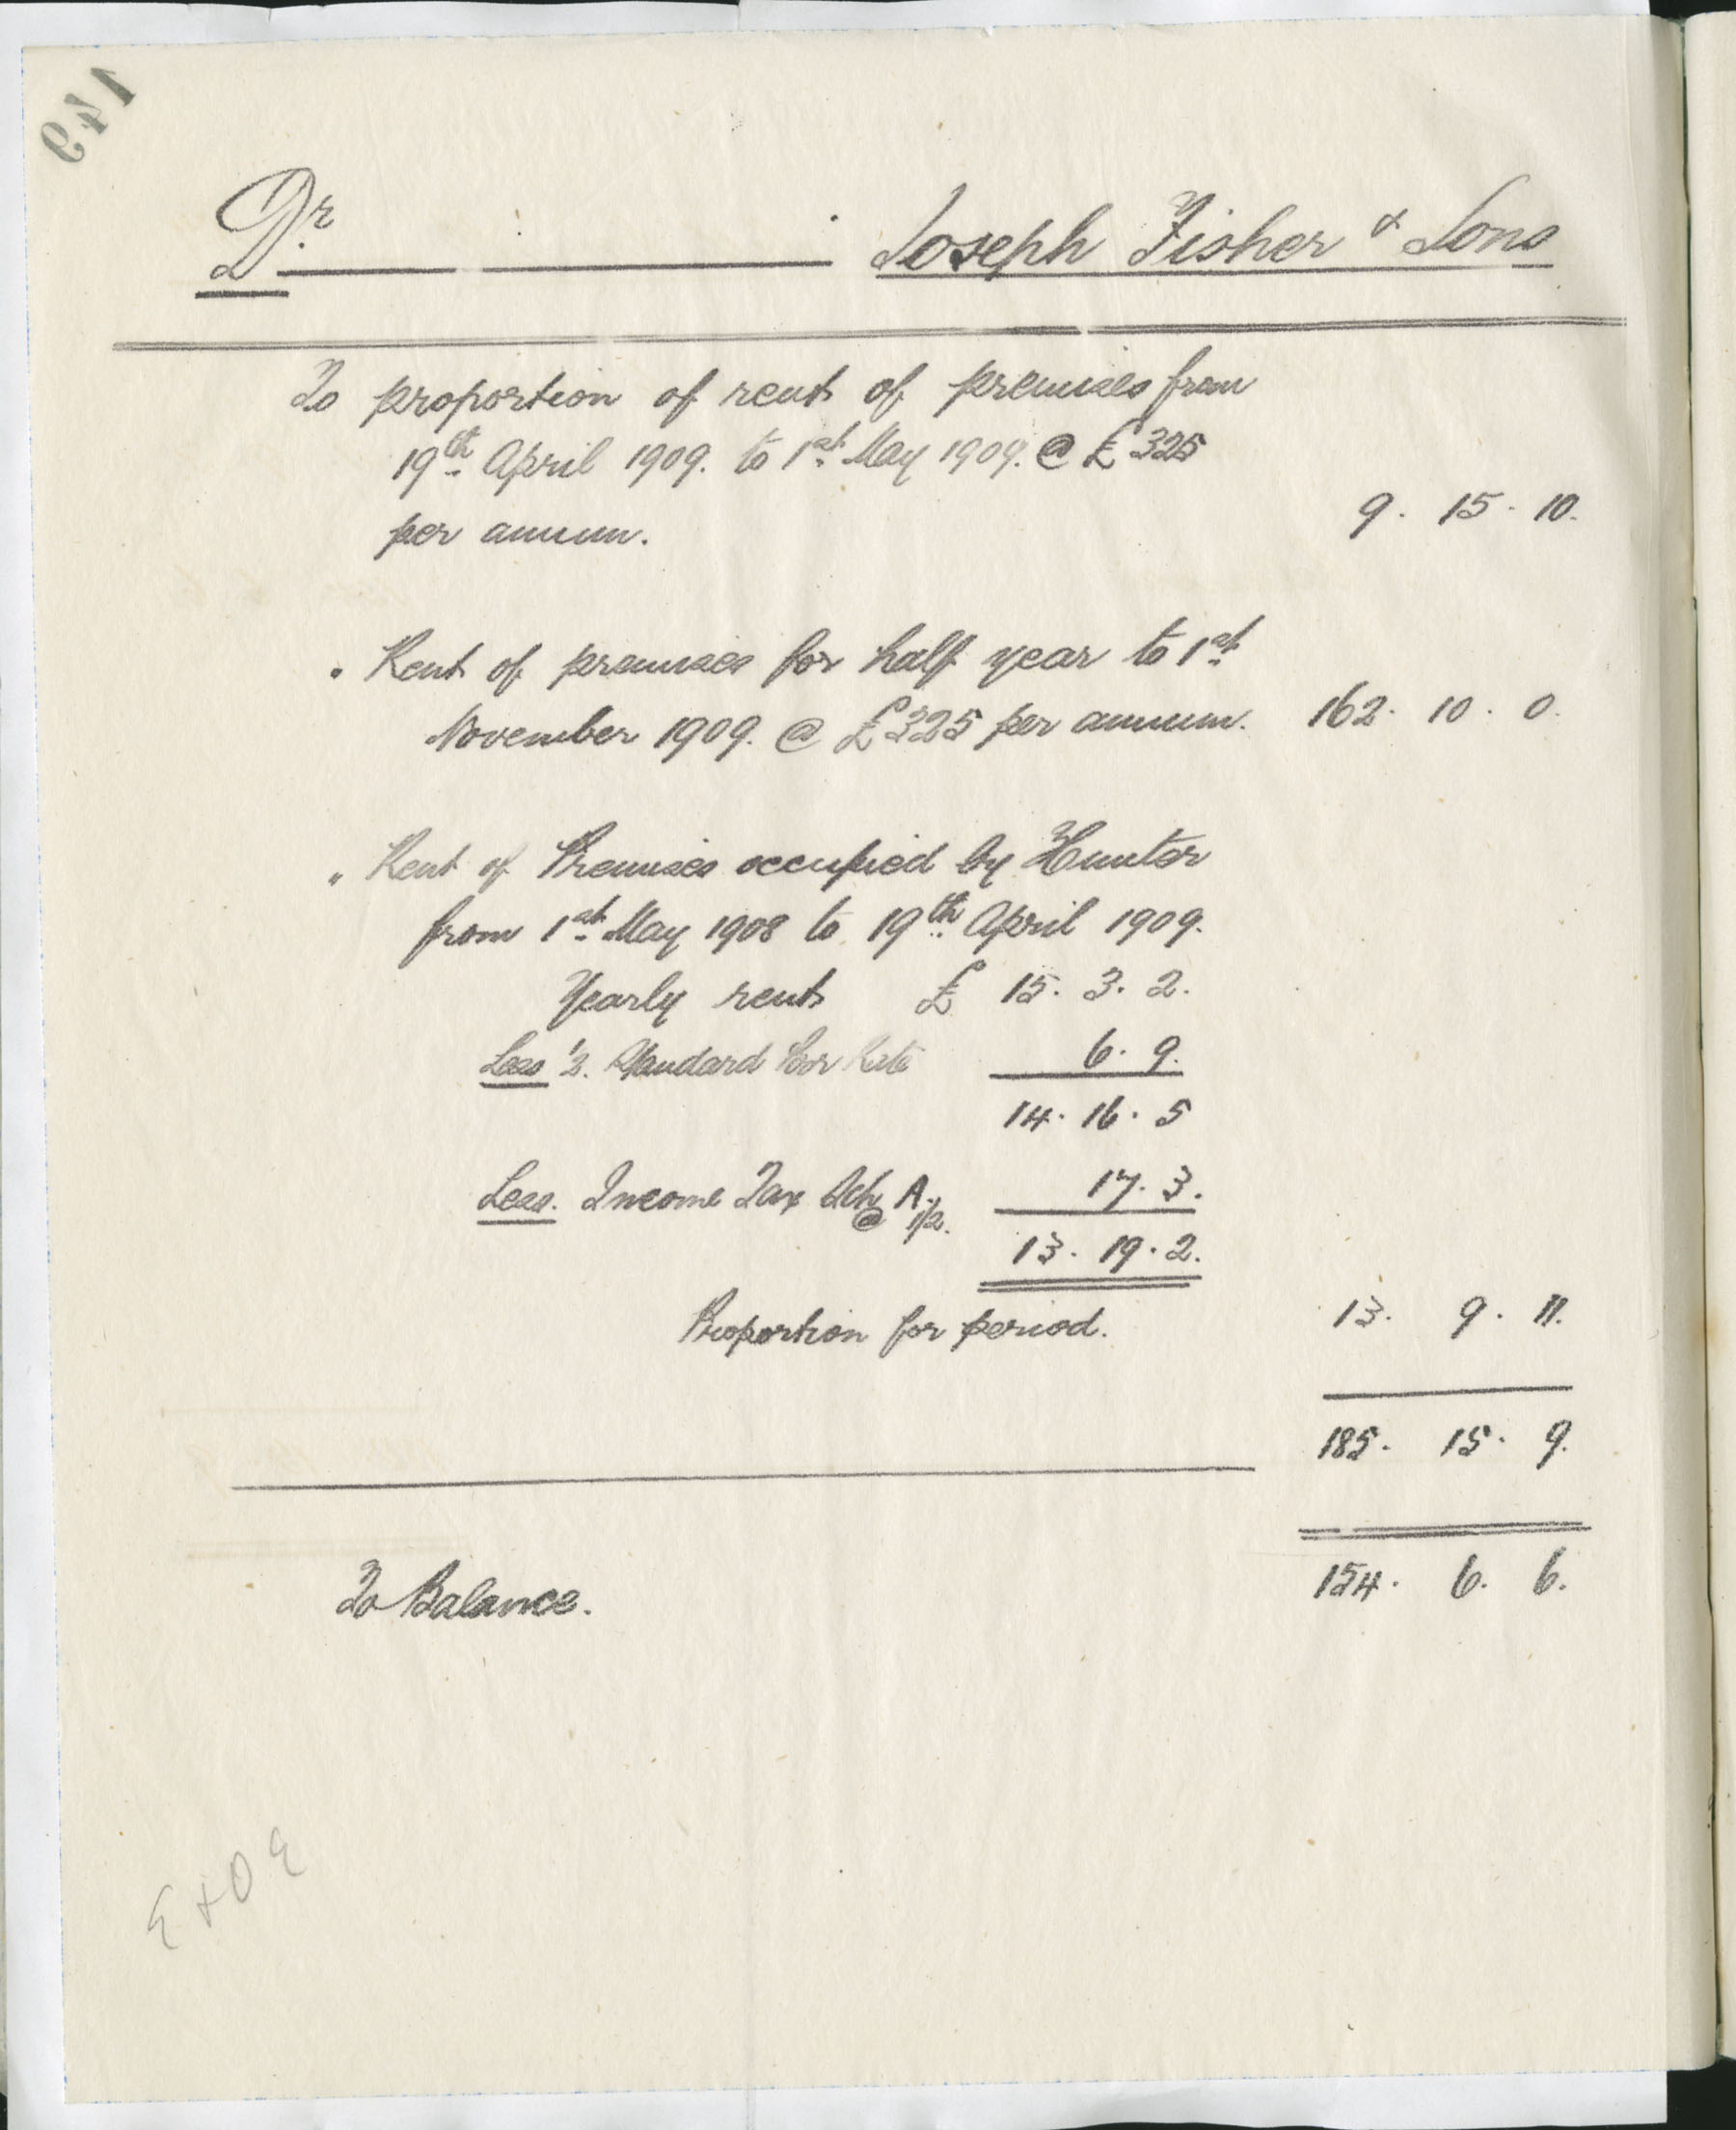 149
Dr. Joseph Fisher & Sons
To proportion of rent of premises from
19th April 1909. to 1st May 1909. @ £325
per annum. 9. 15. 10.
" Rent of premises for half year to 1st
November 1909. @ £325 per annum. 162. 10. 0.
" Rent of Premises occupied by Hunter
from 1st May 1908 to 19th April 1909.
Yearly rent £ 15. 3. 2.
Less ½. Standard Poor Rate 6. 9.
14. 16. 5
Less. Income Tax Sch A. @ 1/2. 17. 3.
13. 19. 2.
Proportion for period. 13. 9. 11.
185. 15. 9.
To Balance. 154. 6. 6.
E & O E